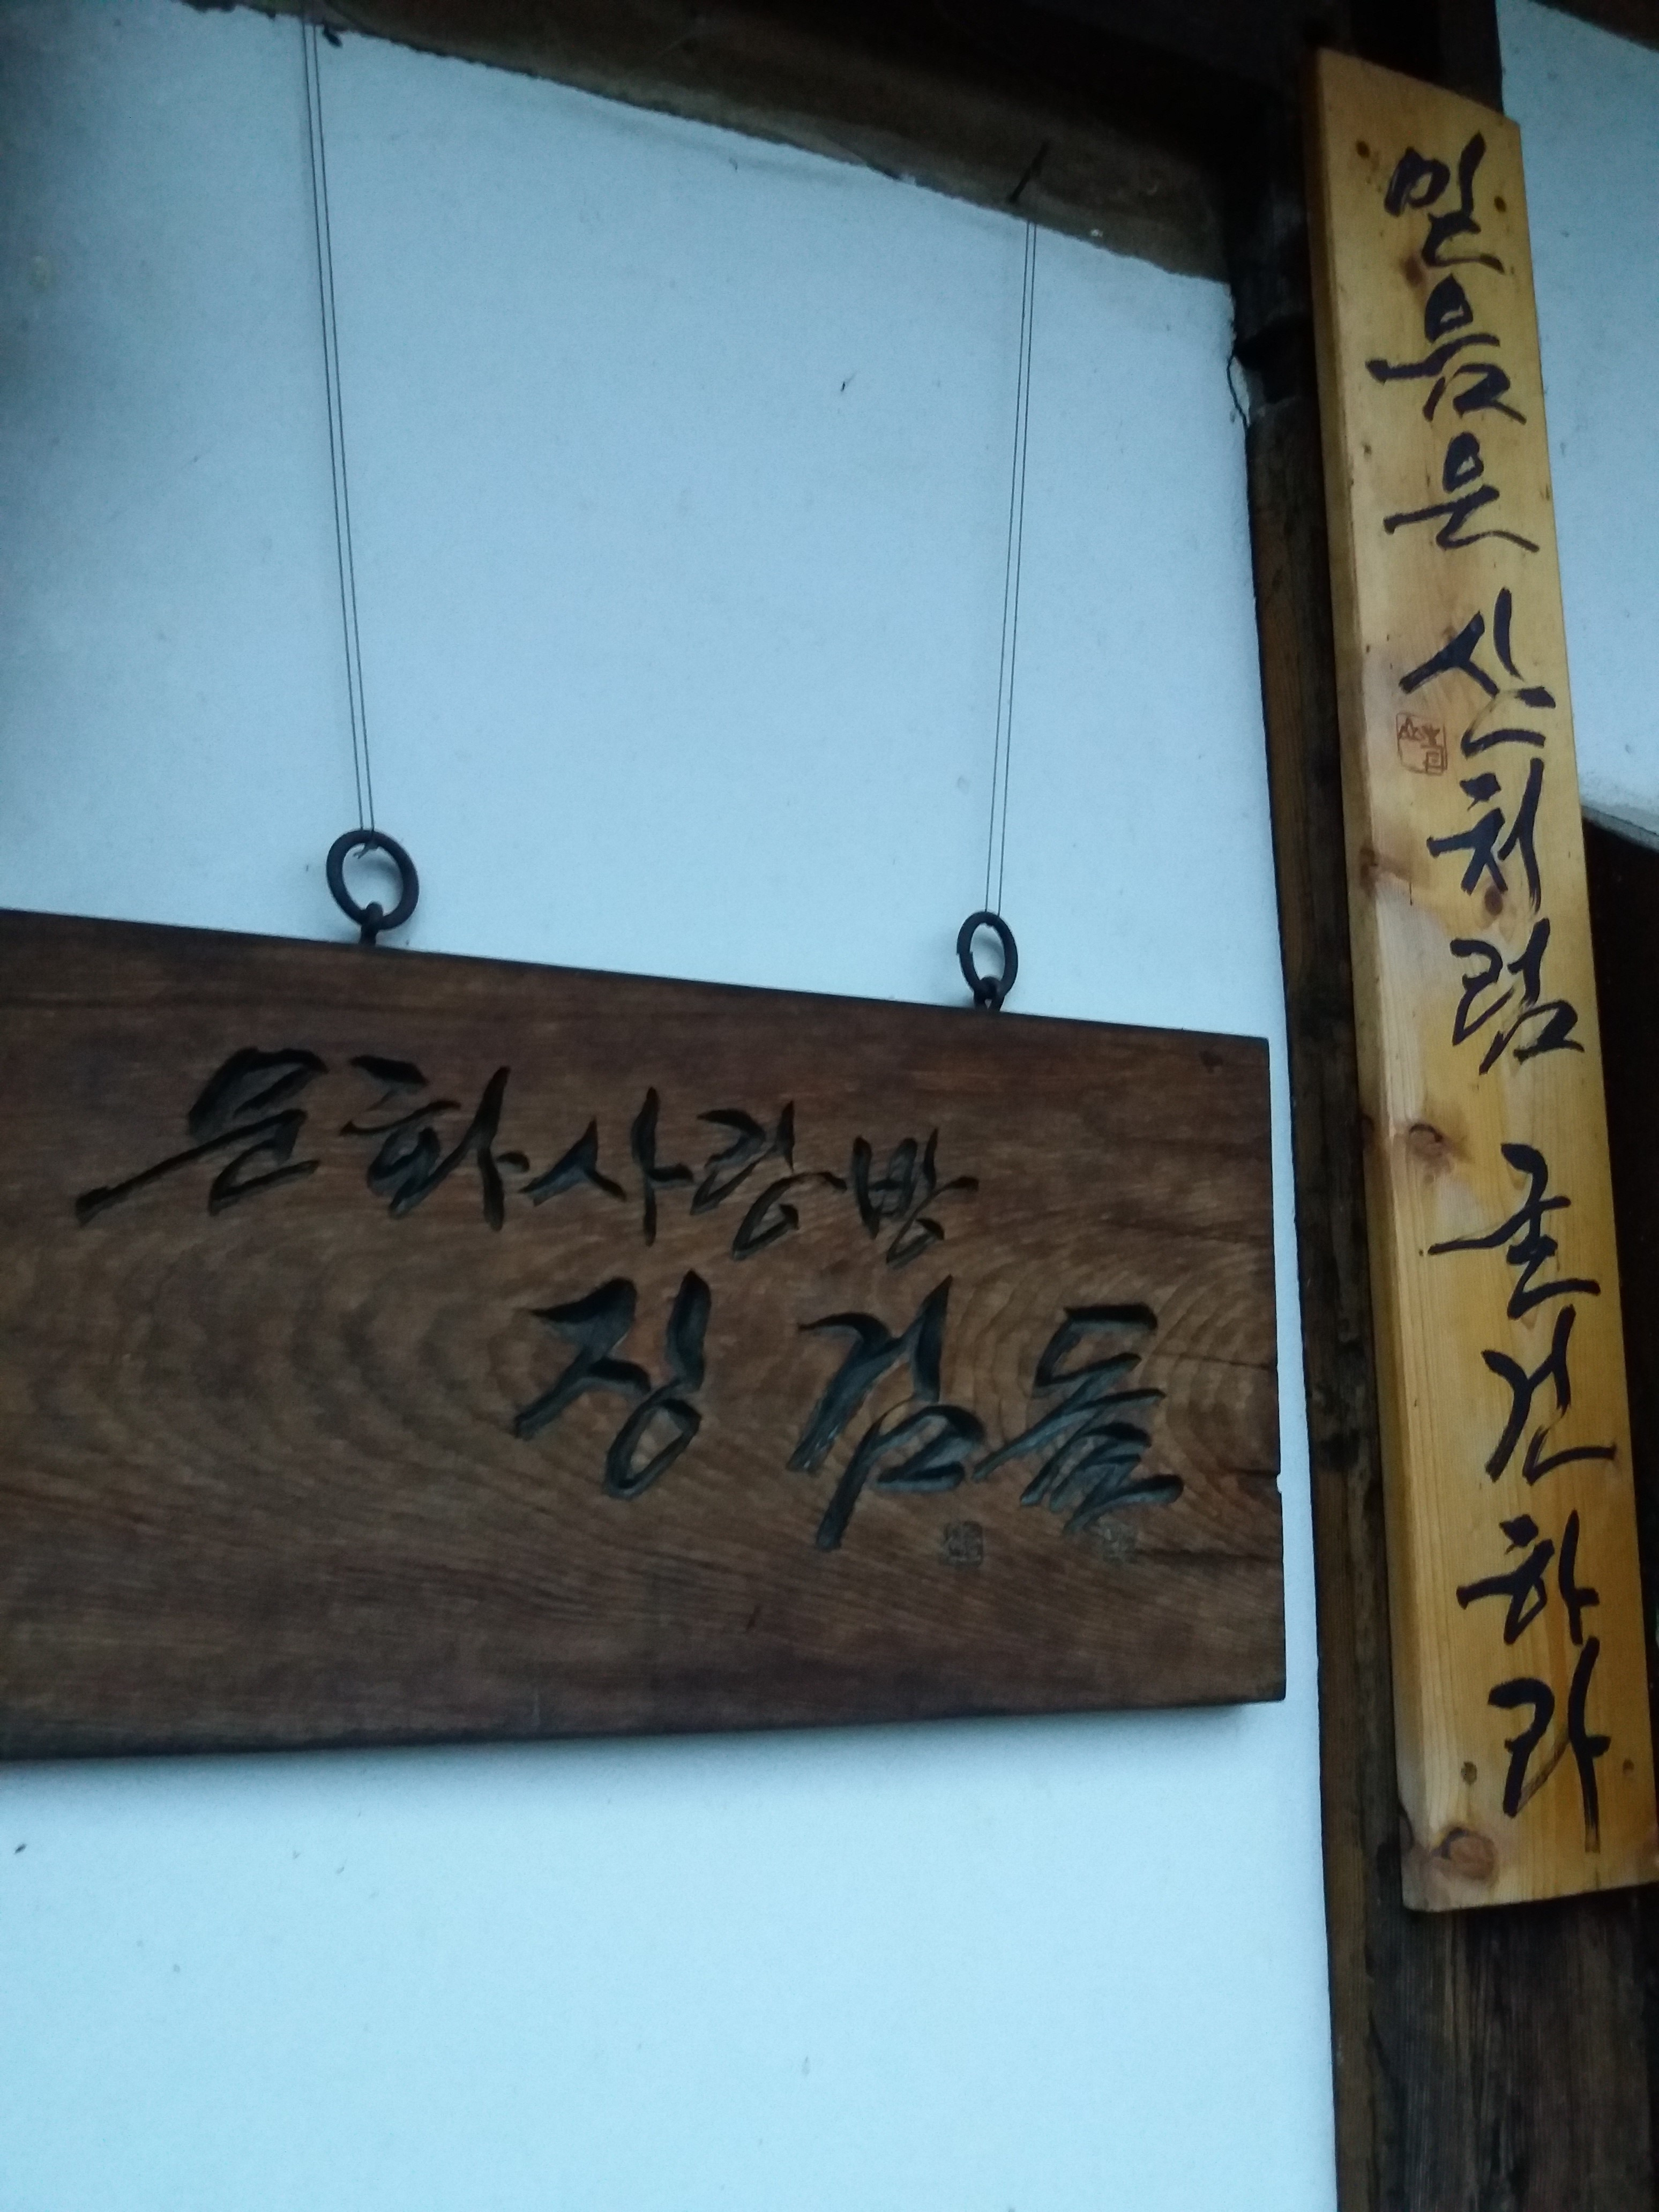 문화사랑방
징검돌
믿음은 산처럼 굳건하라